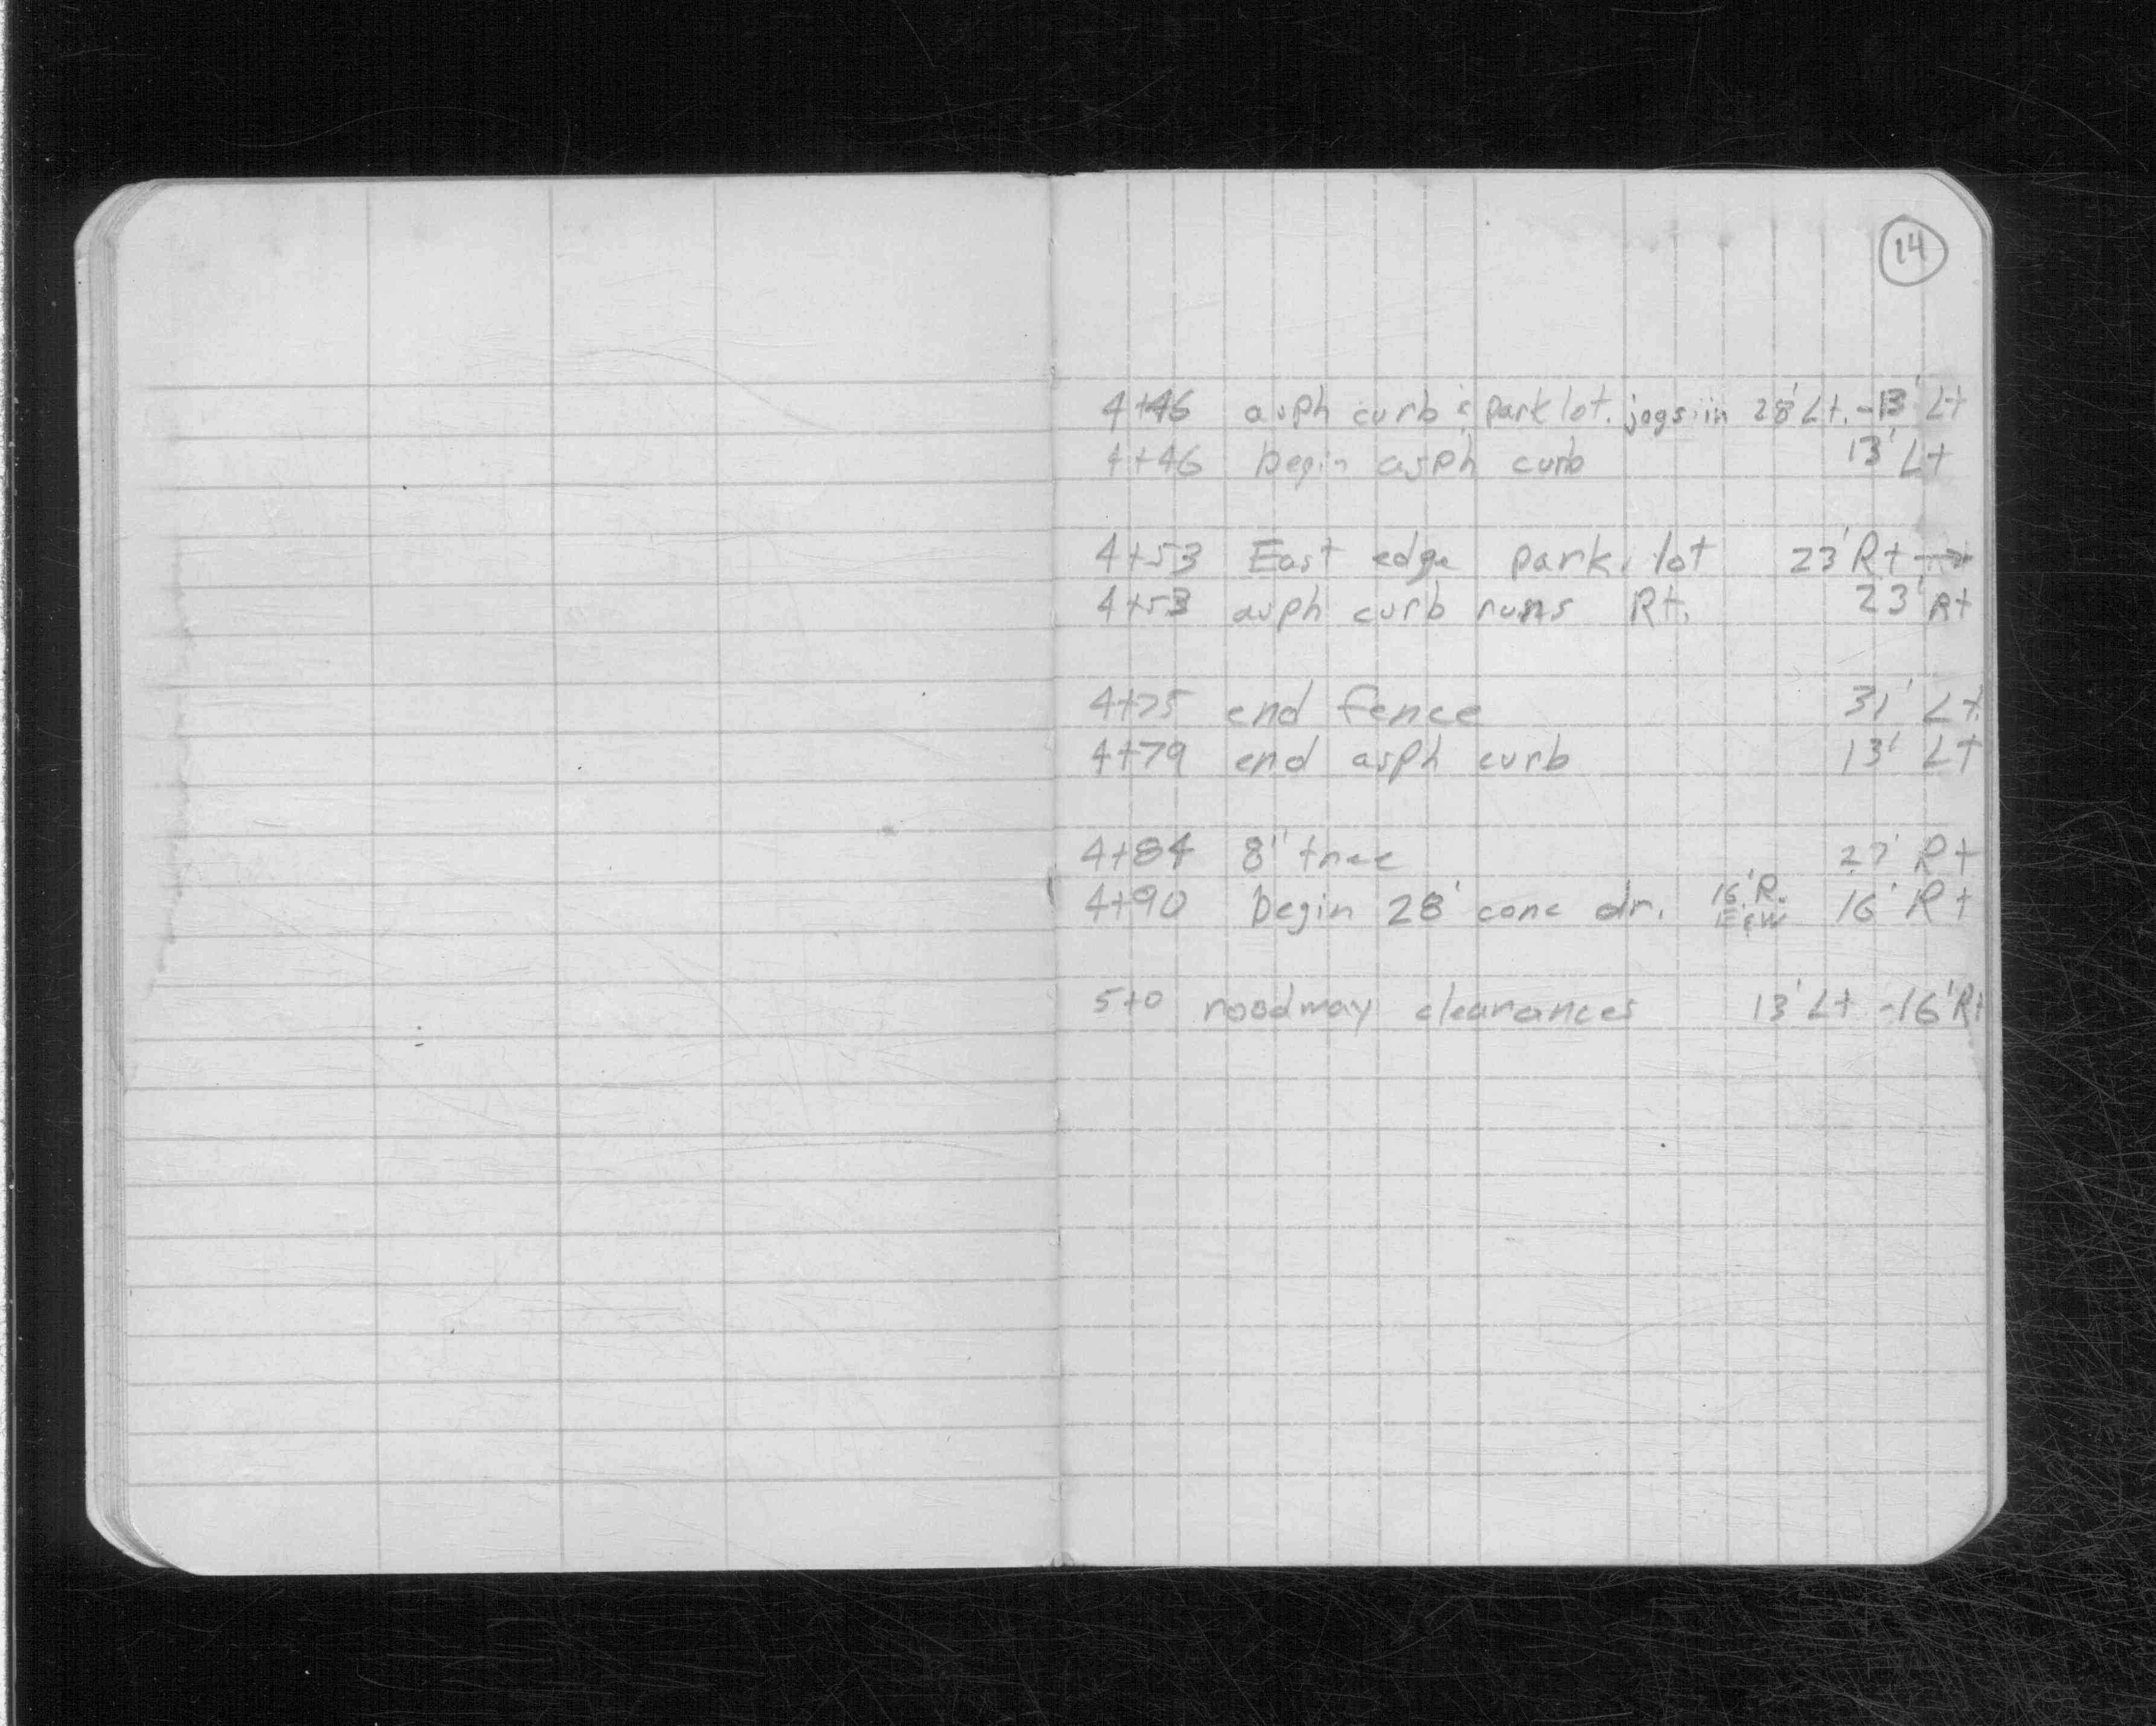 14
4+46 asph curb & park lot. jogs in 28' Lt. - 13' Lt
4+46 begin asph curb 13' Lt
4+53 East edge park. lot 23' Rt →
4+53 asph curb runs Rt. 23' Rt
4+75 end fence 31' Lt.
4+79 end asph curb 13' Lt
4+84 8" tree 27' Rt
4+90 begin 28' conc dr. 16' R. E&W 16' Rt
5+0 roadway clearances 13' Lt - 16' Rt